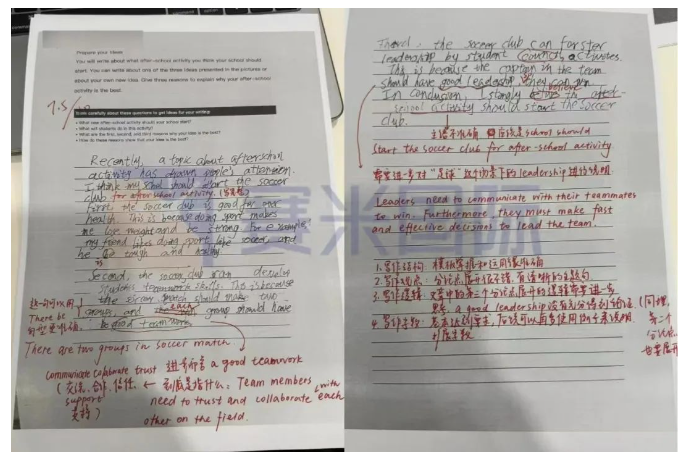 Prepare your ideas
You will write about what after-school activity you think your school should
start. You can write about any of the three ideas presented in the pictures or
about your own new idea. Give three reasons to explain why your after-school
activity is the best.
7.5/10
Think carefully about these questions to get ideas for your writing:
• What new after-school activity should your school start?
• What will students do in this activity?
• What are the first, second, and third reasons why your idea is the best?
• How do these reasons show that your idea is the best?
Recently, a topic about afterschool
activity has drawn people's attention.
I think my school should start the soccer
club for after-school activity.
First, the soccer club is good for our
health. This is because doing sport makes
me lose weight and be strong. For example,
my friend likes doing sport like soccer, and
he is tough and healthy.
Second, the soccer club can develop
students teamwork skills. This is because
the soccer match should make two
groups, and each group should have
a good teamwork.
这句可以用
There be
句型更准确
There are two groups in soccer match
communicate collaborate trust 进步作者 a good teamwork
(交流、合作、信任 ← 到底是指什么: Team members
support need to trust and collaborate with each
支持) other on the field.
赛米国际
Third, the soccer club can forster
leadership by student council activates.
This is because the caption in the team
should have good leadership, they can run
In conclusion, I stongly believe the after
school activity should start the soccer
club.
主语不准确 应该是 school should
start the soccer club for after-school activity
需要进一步对 "足球" 这个场景下的 leadership 进行说明
Leaders need to communicate with their teammates
to win. Furthermore, they must make fast
and effective decisions to lead the team.
1. 写作结构:
2. 写作观点: 有清晰的主题句
3. 写作逻辑: 文章中的第三个分论点展开的逻辑需要进一步
a good leadership 没有充分得到论证 (同理,
4. 写作字数: 后续可以再多使用例子来说明 第二个
扩展字数 分论点
也需展开